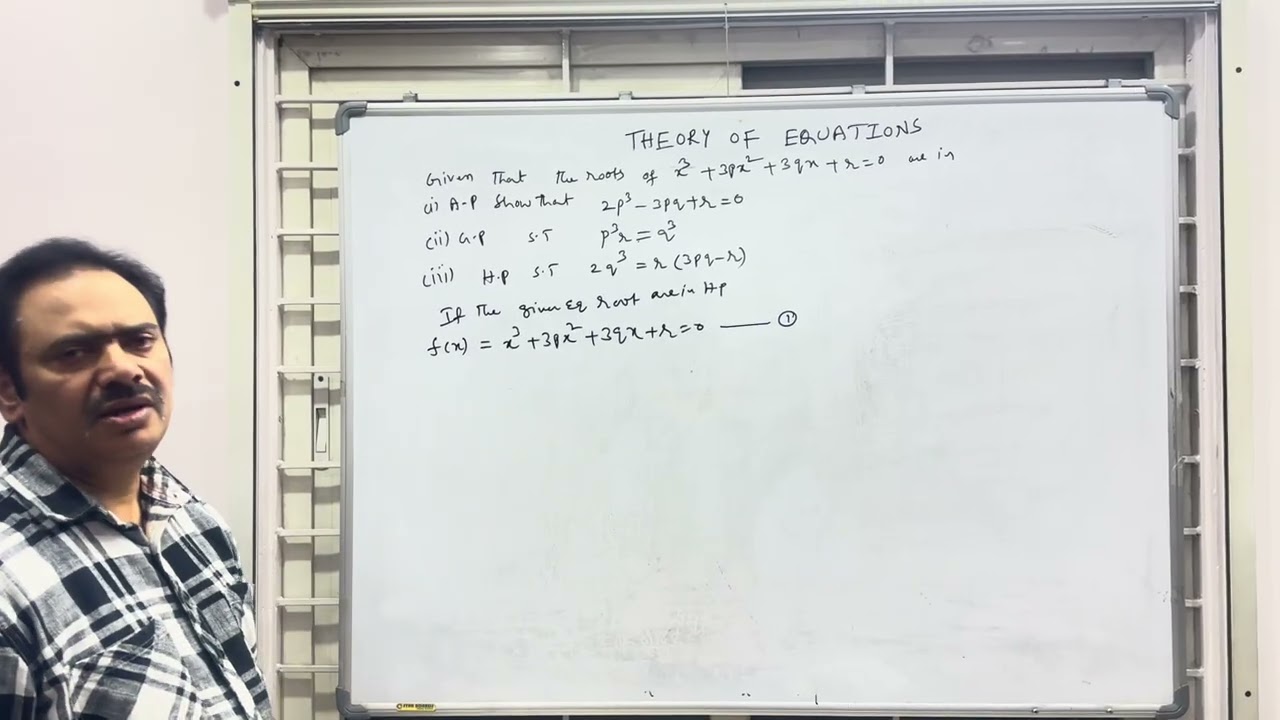 THEORY OF EQUATIONS
Given That the roots of x³ + 3px² + 3qx + r = 0 are in
(i) A.P Show that 2p³ - 3pq + r = 0
(ii) G.P S.T p³r = q³
(iii) H.P S.T 2q³ = r (3pq - r)
If the given Eq root are in HP
f(x) = x³ + 3px² + 3qx + r = 0 —— ①